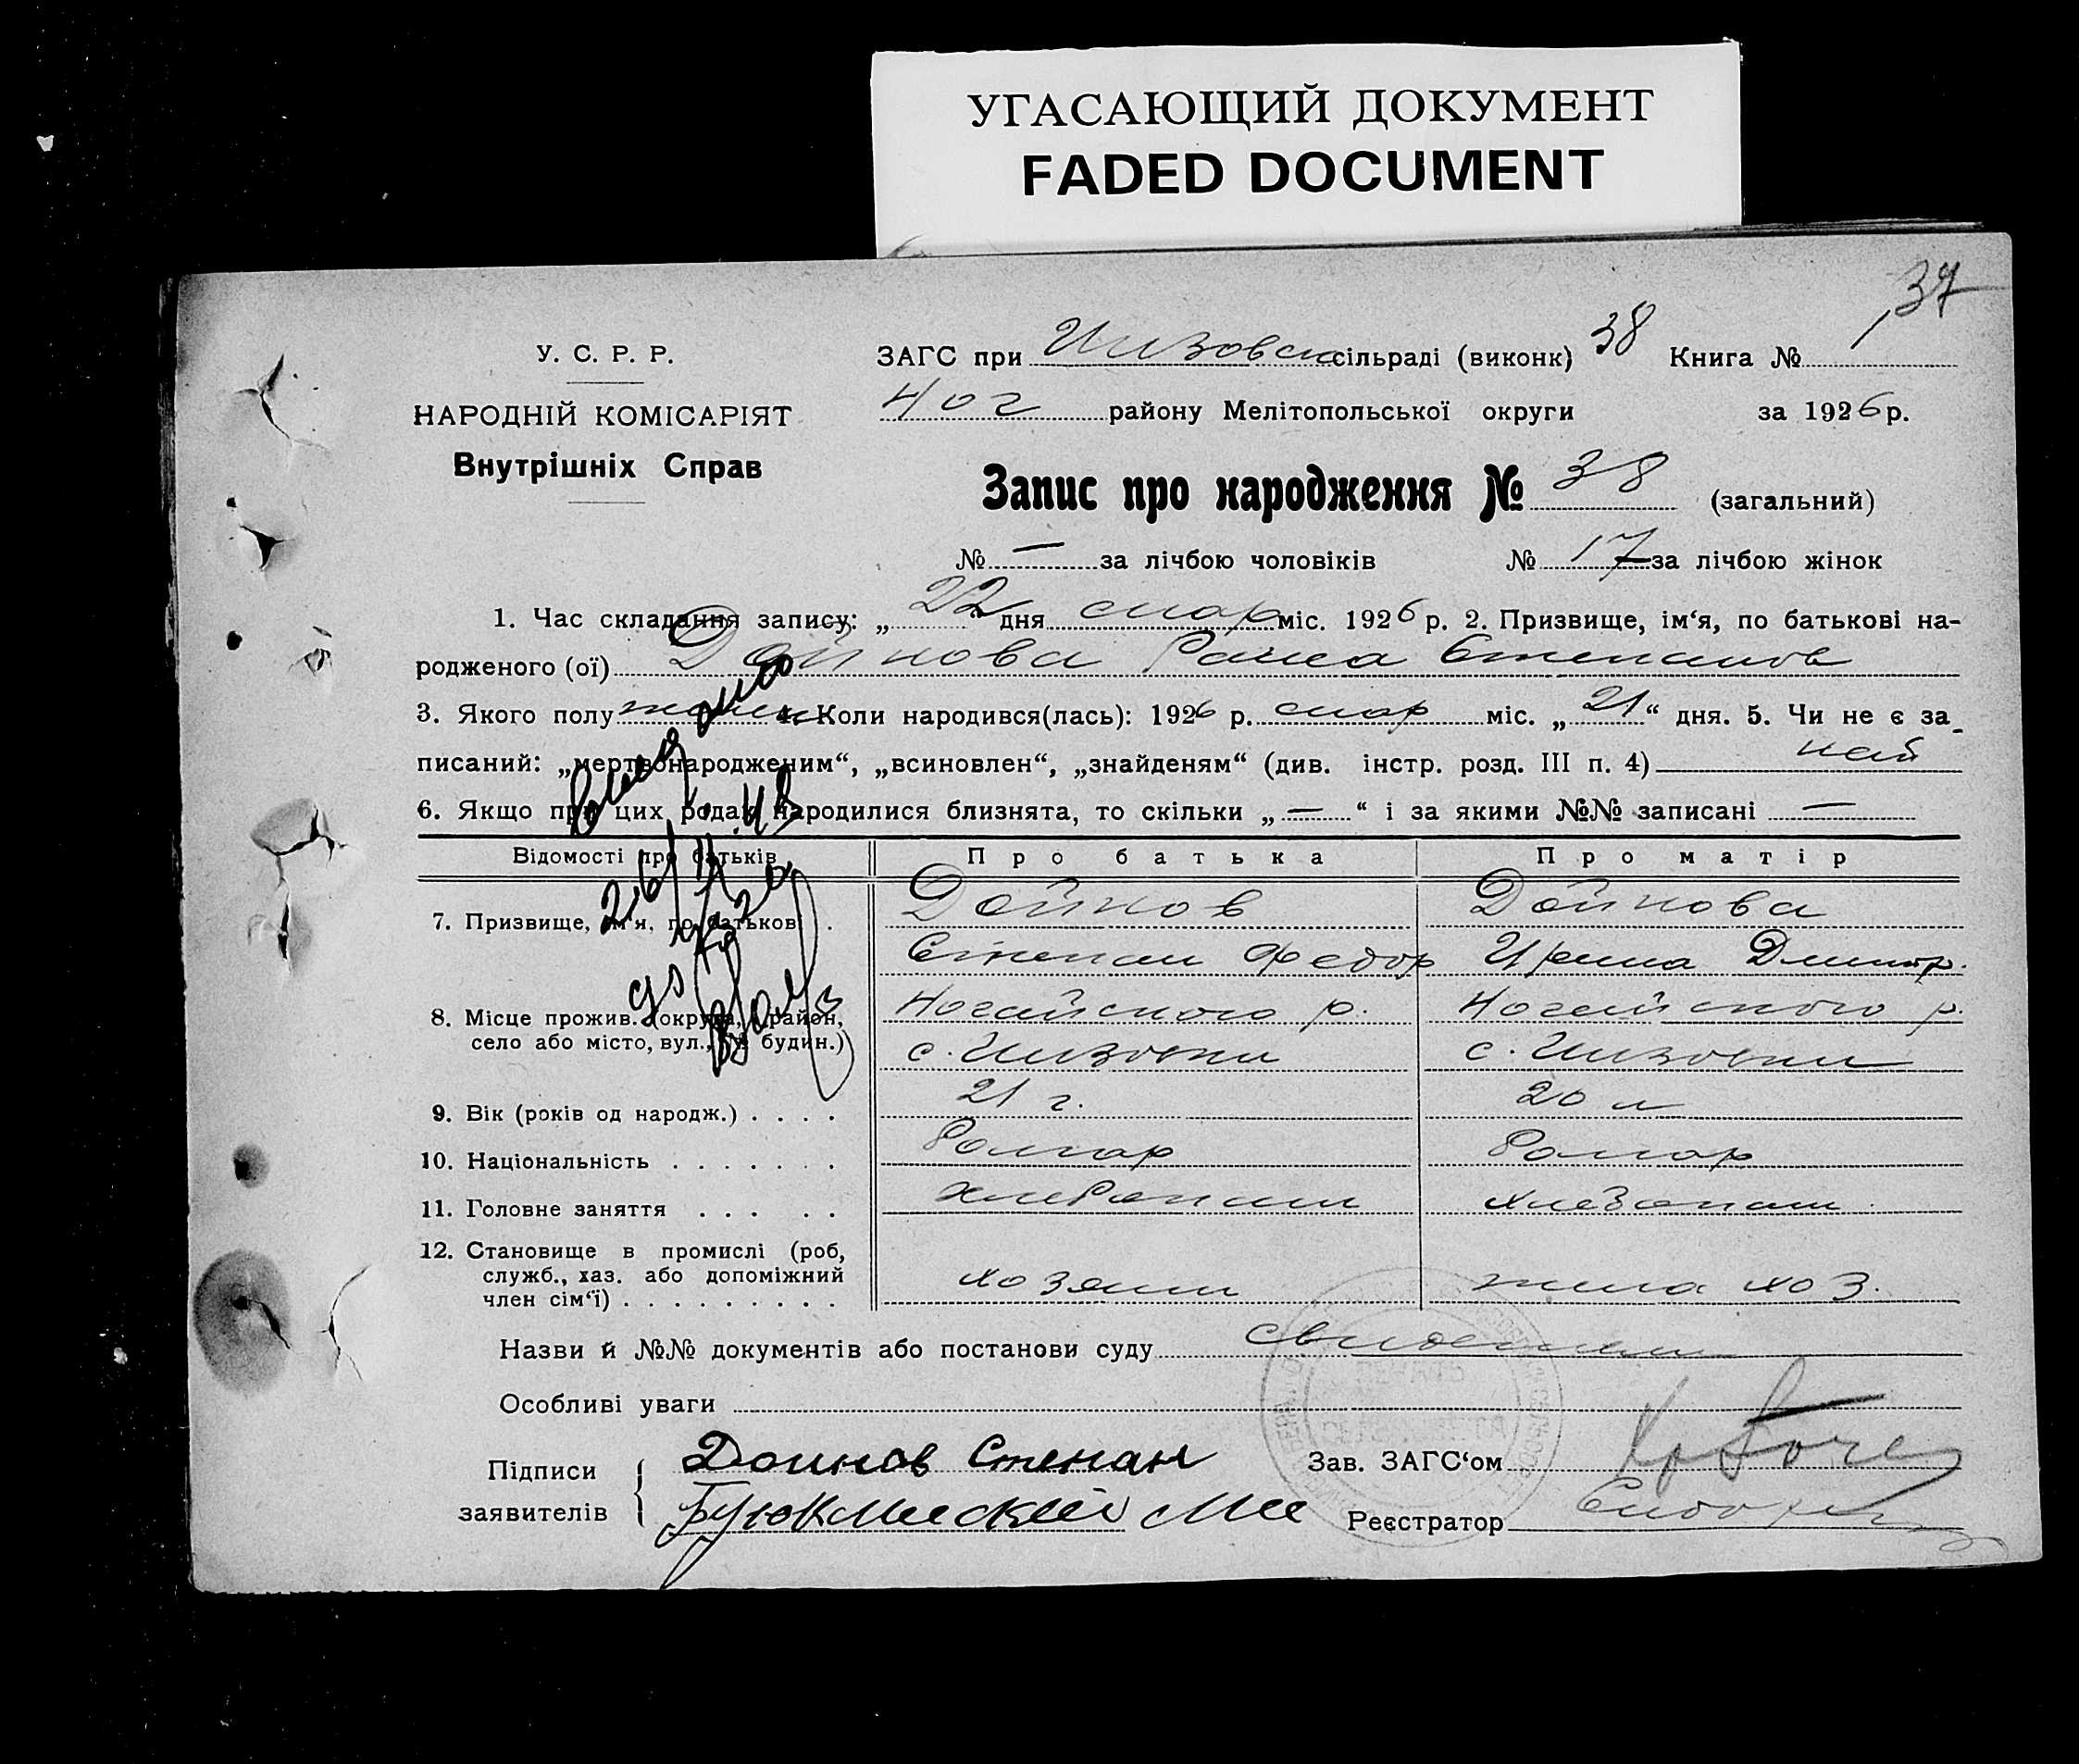 УГАСАЮЩИЙ ДОКУМЕНТ
FADED DOCUMENT
37
У. С. Р. Р.
НАРОДНІЙ КОМІСАРІЯТ
Внутрішніх Справ
ЗАГС при сільраді (виконк) 38 Книга № 1
Ног району Мелітопольської округи за 1926 р.
Запис про народження № 38 (загальний)
№ — за лічбою чоловіків № 17 за лічбою жінок
1. Час складання запису: „22“ дня міс. 1926 р. 2. Призвище, ім‘я, по батькові на-
родженого (ої) Дойнова Степанов
3. Якого полу женск 4. Коли народився(лась): 1926 р. міс. „21“ дня. 5. Чи не є за-
писаний: „мертвонародженим“, „всиновлен“, „знайденям“ (див. інстр. розд. III п. 4)
6. Якщо при цих родах народилися близнята, то скільки „—“ і за якими №№ записані —
Відомості про батьків Про батька Про матір
7. Призвище, ім‘я, по батькові . Дойнов Дойнова
Степан Федор Ирина Дмитр.
8. Місце прожив. (округа, район, Ногайского р. Ногайского р.
село або місто, вул., № будин.) с. с.
9. Вік (років од народж.) . . . . 21 г. 20 л
10. Національність . . . . . . . Болгар Болгар
11. Головне заняття . . . . . Хлебопаш хлебопаш
12. Становище в промислі (роб,
служб., хаз. або допоміжний
член сім‘ї) . . . . . . . . . хозяин жена хоз.
Назви й №№ документів або постанови суду
Особливі уваги
Підписи Доинов Степан Зав. ЗАГС‘ом
заявителів Реєстратор